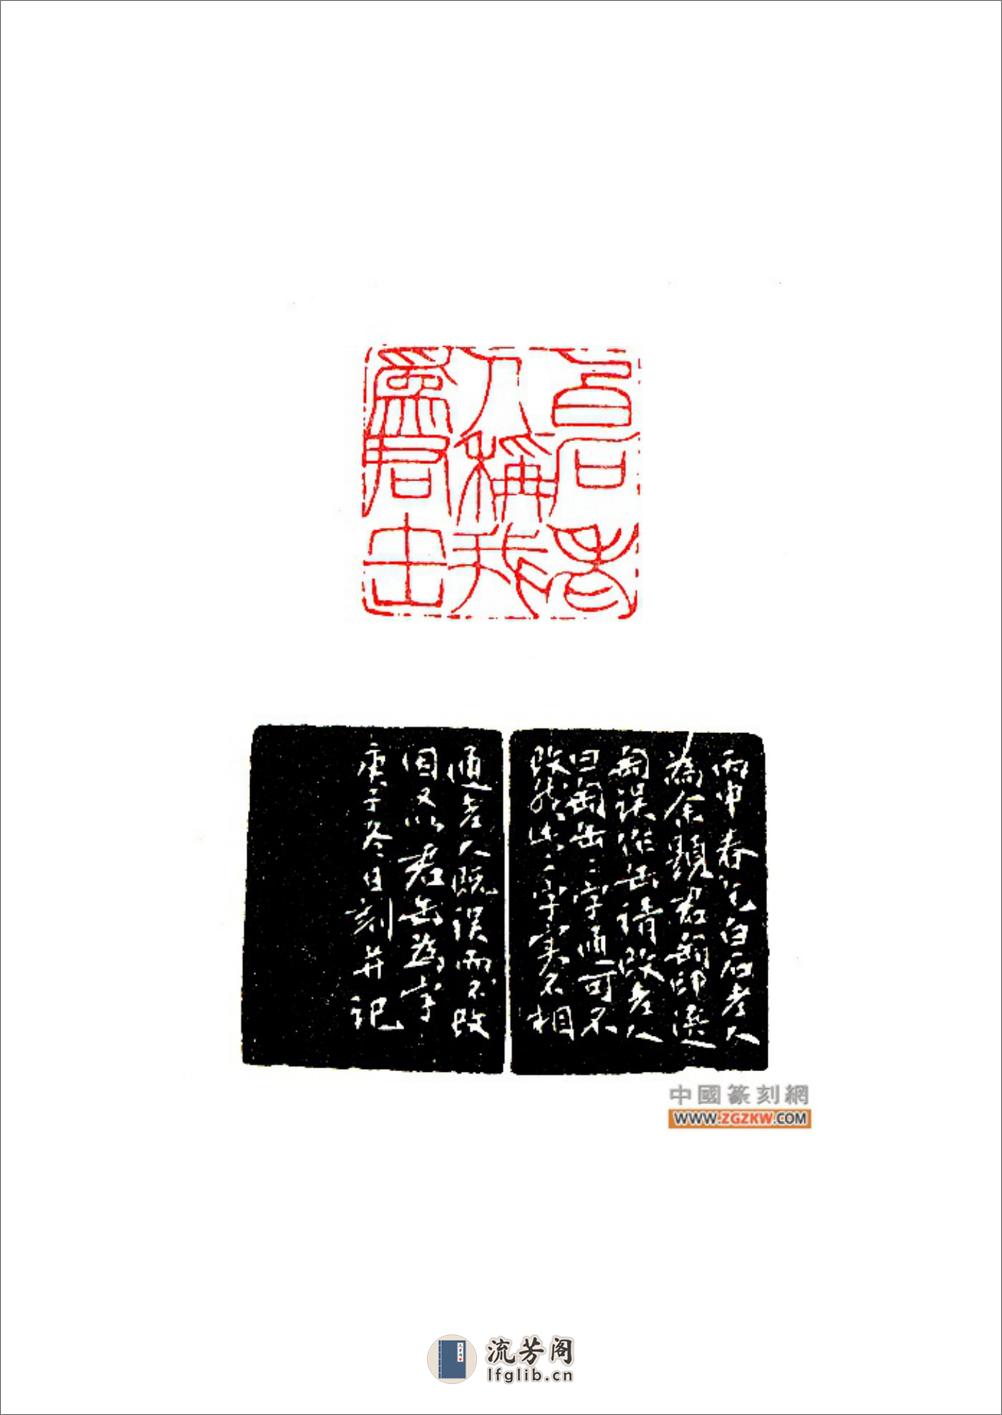 白石老
人稱我
為君缶
丙申春乞白石老人
為余題君匋印選
匋誤作缶請改老人
曰匋缶二字通可不
改然此二字實不相
通老人既誤而不改
因又以君缶為字
庚子冬日刻并記
中國篆刻網
WWW.ZGZKW.COM
流芳阁
lfglib.cn